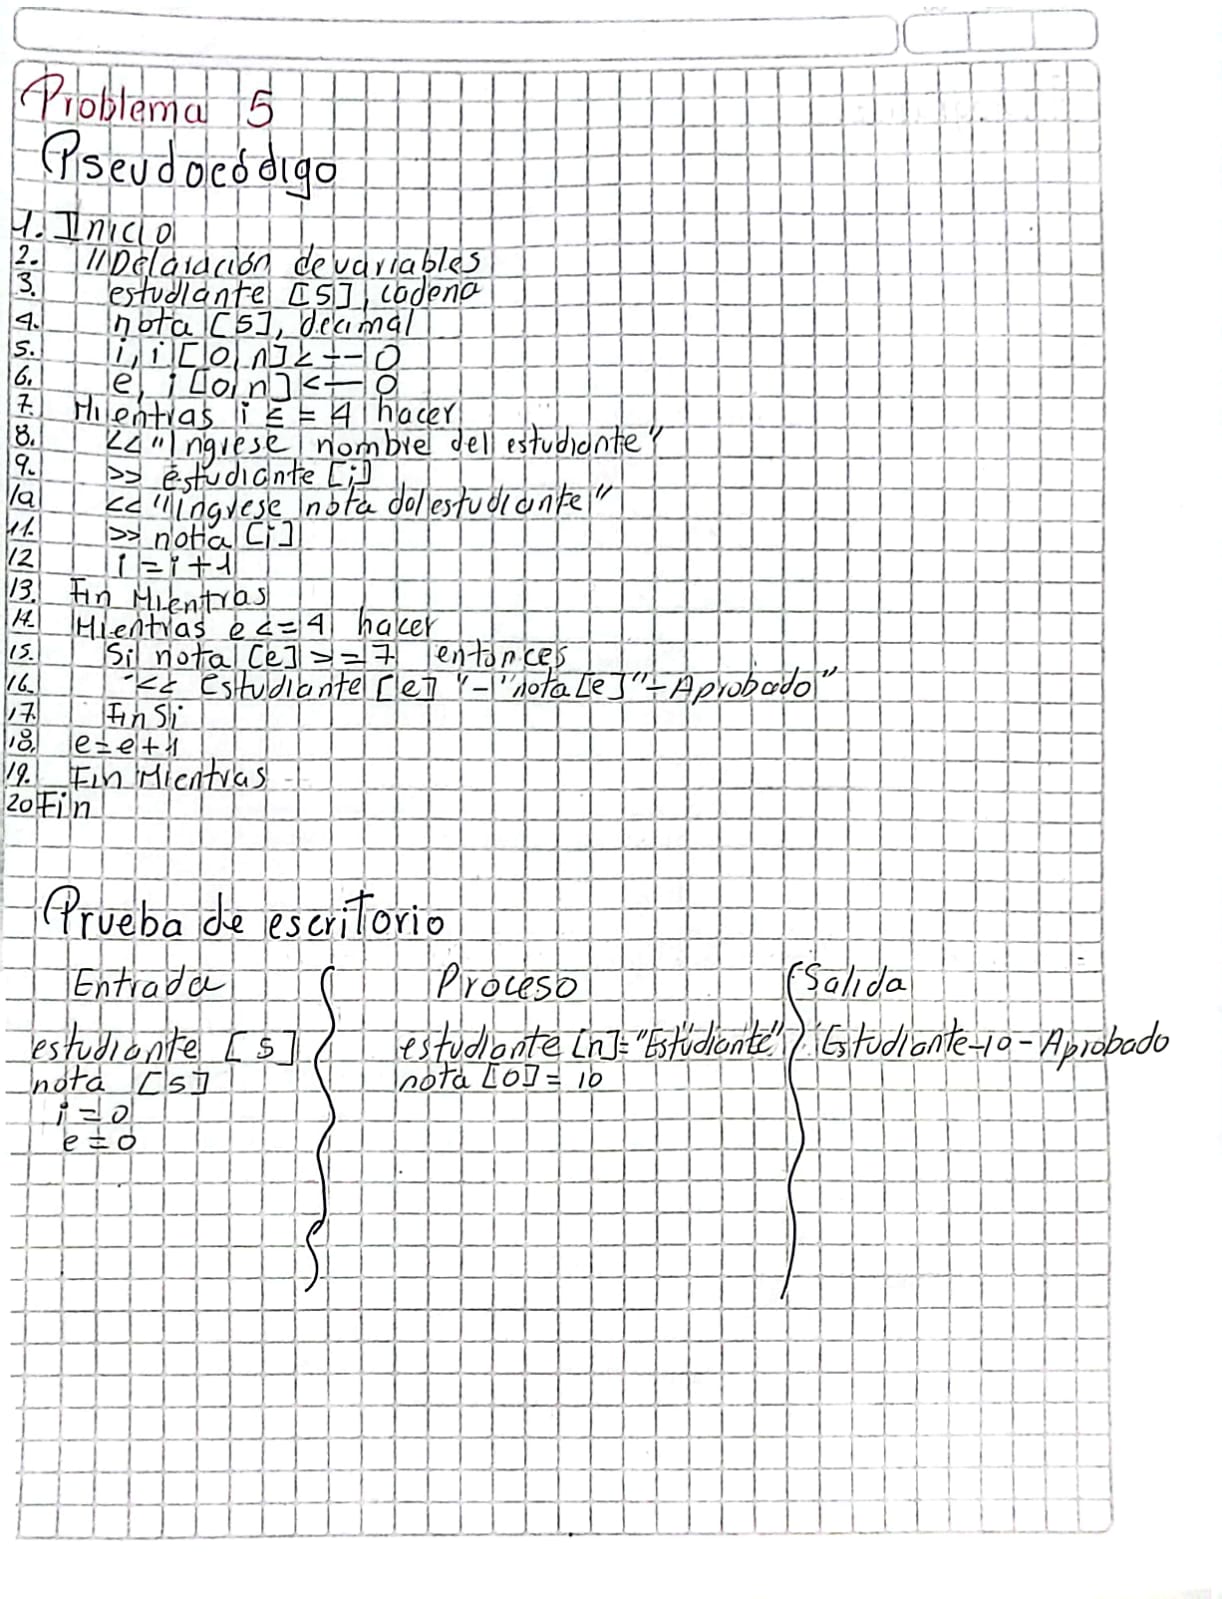 Problema 5
Pseudocódigo
1. Inicio
2. //Delaración de variables
3. estudiante [5], cadena
4. nota [5], decimal
5. i, i [0, n] <-- 0
6. e, i [0, n] <-- 0
7. Mientras i <= 4 hacer
8. << "Ingrese nombre del estudiante"
9. >> estudiante [i]
10 << "Ingrese nota del estudiante"
11. >> nota [i]
12 i = i + 1
13. Fin Mientras
14. Mientras e <= 4 hacer
15. Si nota [e] >= 7 entonces
16. << estudiante [e] "-" nota [e] "- Aprobado"
17. Fin Si
18. e = e + 1
19. Fin Mientras
20 Fin
Prueba de escritorio
Entrada Proceso Salida
estudiante [5] estudiante [n] = "Estudiante" Estudiante-10-Aprobado
nota [5] nota [0] = 10
i = 0
e = 0